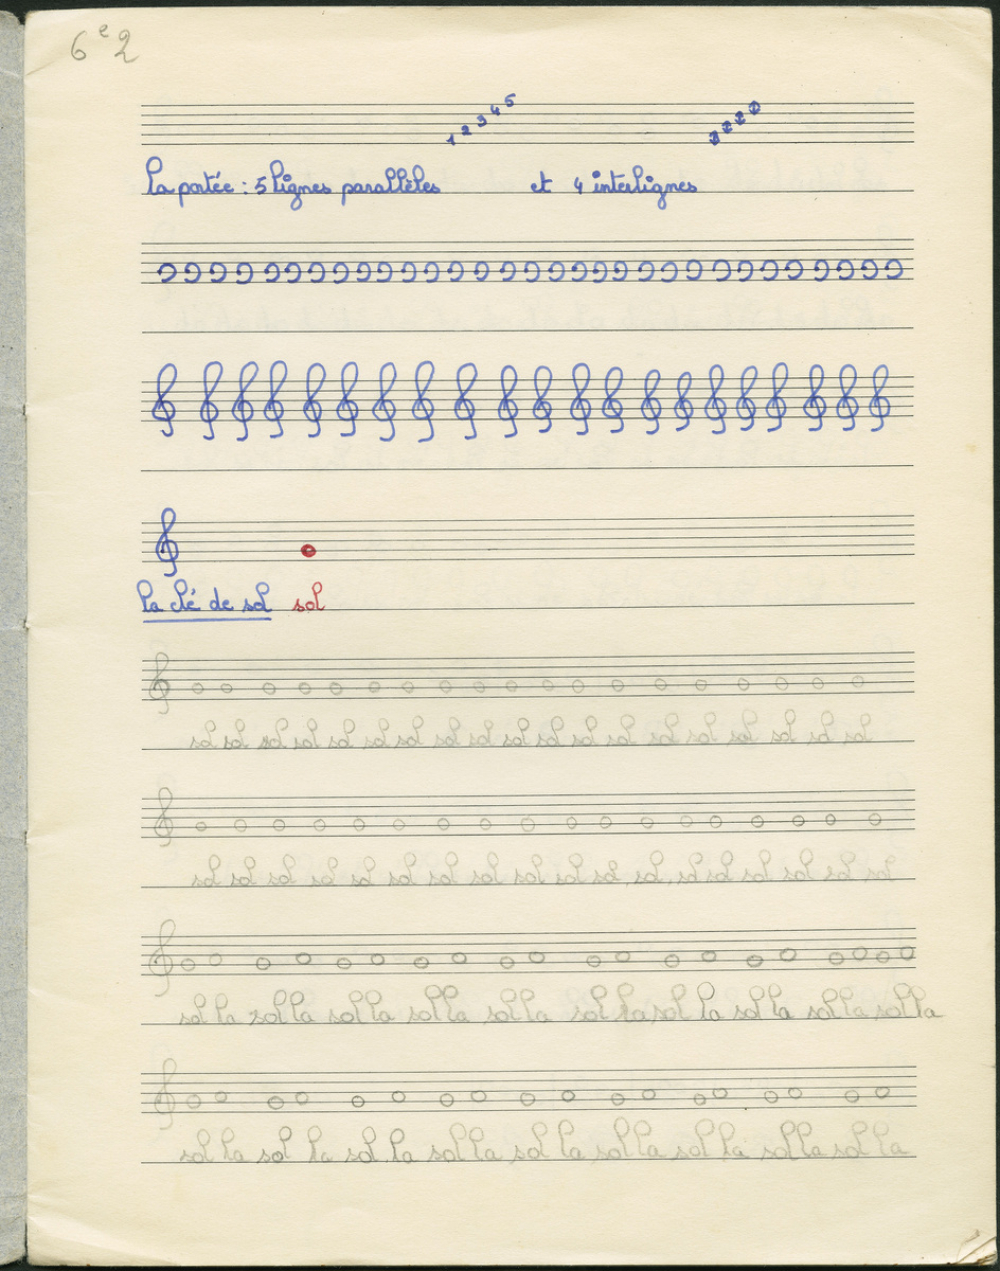 6e2
1 2 3 4 5 1 2 3 4
la portée : 5 lignes parallèles et 4 interlignes
la clé de sol sol
sol sol sol sol sol sol sol sol sol sol sol sol sol sol sol sol sol sol
sol sol sol sol sol sol sol sol sol sol sol sol sol sol sol sol sol sol
sol la sol la sol la sol la sol la sol la sol la sol la sol la sol la
sol la sol la sol la sol la sol la sol la sol la sol la sol la